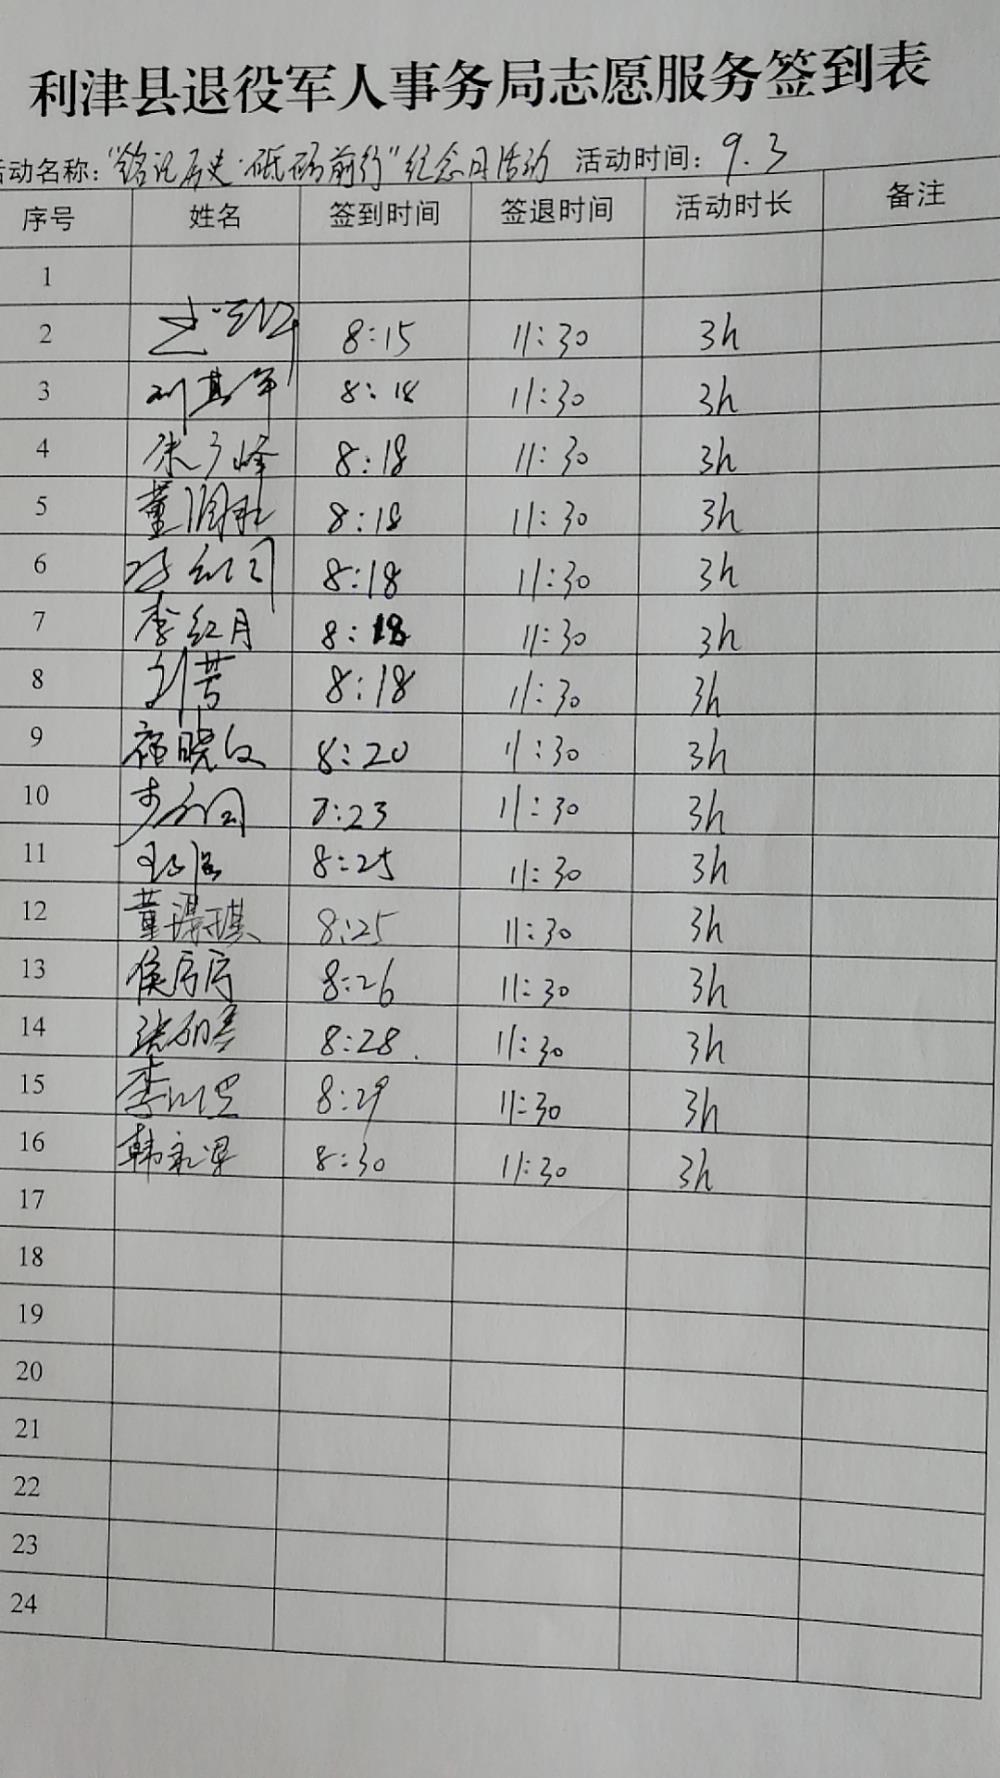 利津县退役军人事务局志愿服务签到表
活动名称："铭记历史·砥砺前行"纪念日活动 活动时间：9.3
序号 姓名 签到时间 签退时间 活动时长 备注
1
2 8:15 11:30 3h
3 刘其军 8:18 11:30 3h
4 徐广峰 8:18 11:30 3h
5 董 8:18 11:30 3h
6 8:18 11:30 3h
7 李红月 8:18 11:30 3h
8 刘芳 8:18 11:30 3h
9 晓 8:20 11:30 3h
10 :23 11:30 3h
11 8:25 11:30 3h
12 董琪 8:25 11:30 3h
13 侯 8:26 11:30 3h
14 张 8:28 11:30 3h
15 李 8:29 11:30 3h
16 韩 8:30 11:30 3h
17
18
19
20
21
22
23
24